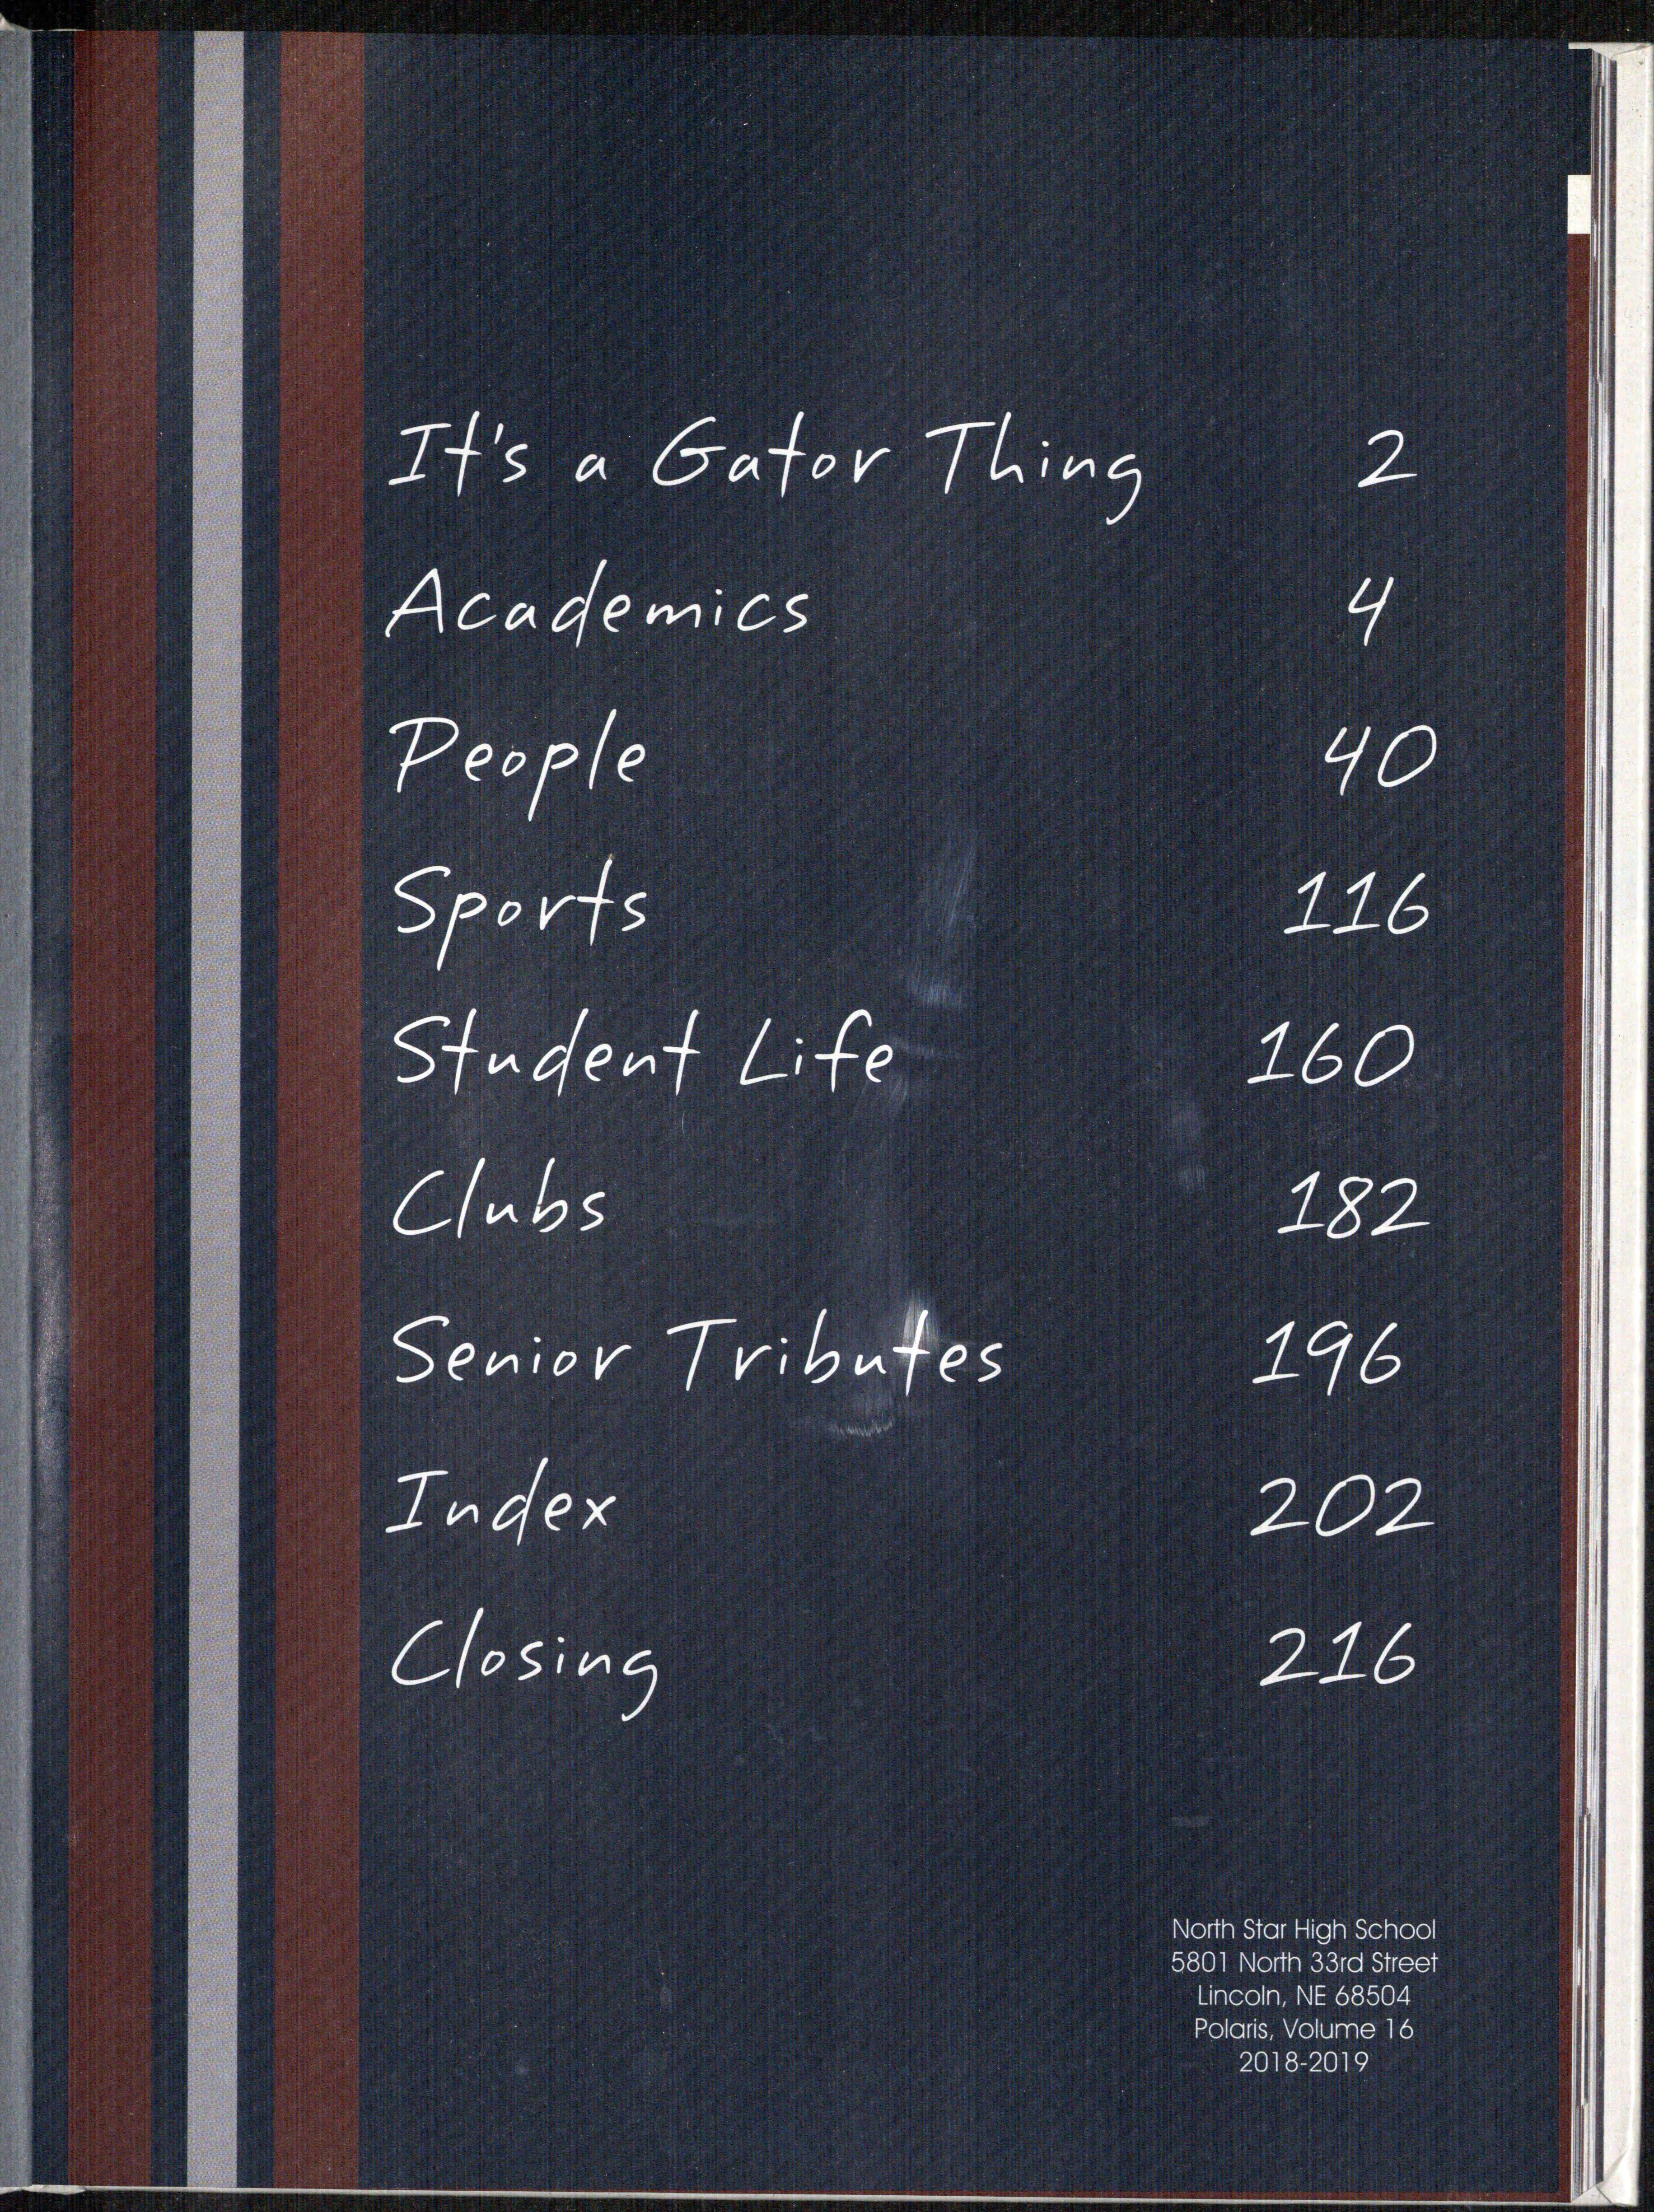 It's a Gator Thing 2
Academics 4
People 40
Sports 116
Student Life 160
Clubs 182
Senior Tributes 196
Index 202
Closing 216
North Star High School
5801 North 33rd Street
Lincoln, NE 68504
Polaris, Volume 16
2018-2019